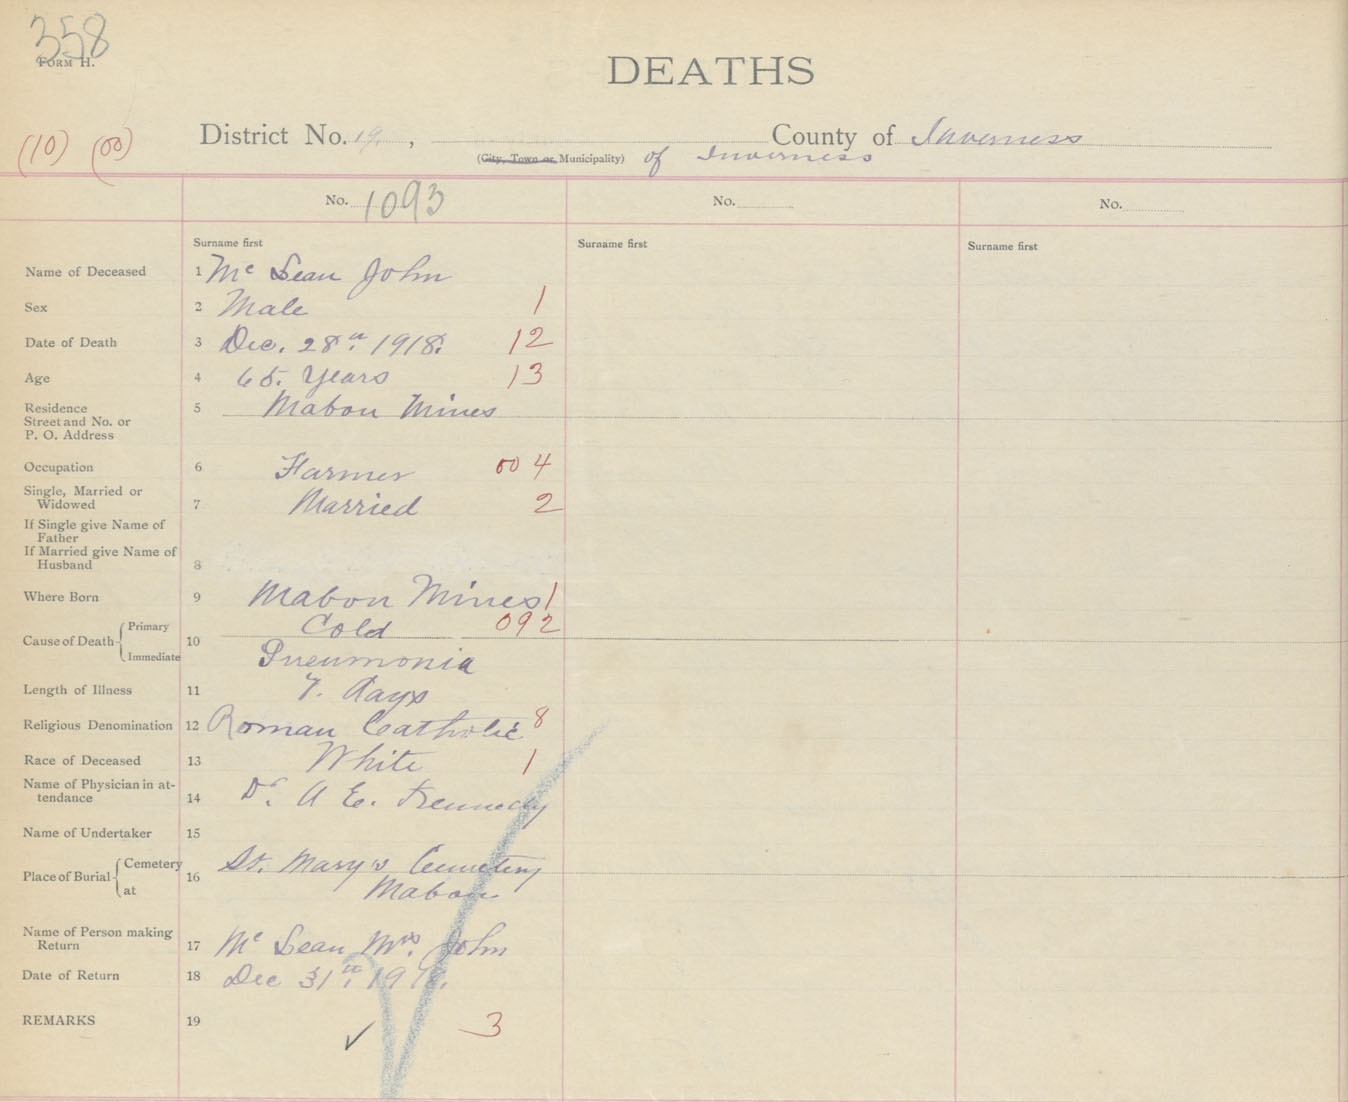 358
FORM H.
DEATHS
(10) (00)
District No. 19, County of Inverness
(City, Town or Municipality) of Inverness
No. 1093 No. No.
Surname first Surname first Surname first
Name of Deceased 1 Mc Lean John
Sex 2 Male 1
Date of Death 3 Dec. 28th 1918. 12
Age 4 65. Years 13
Residence 5 Mabou Mines
Street and No. or
P. O. Address
Occupation 6 Farmer 00 4
Single, Married or
Widowed 7 Married 2
If Single give Name of
Father
If Married give Name of
Husband 8
Where Born 9 Mabou Mines 1
Cause of Death Primary 10 Cold 092
Immediate Pneumonia
Length of Illness 11 7. days
Religious Denomination 12 Roman Catholic 8
Race of Deceased 13 White 1
Name of Physician in at-
tendance 14 Dr. A E. Kennedy
Name of Undertaker 15
Place of Burial Cemetery 16 St. Mary's Cemetery
at Mabou
Name of Person making
Return 17 Mc Lean Mrs. John
Date of Return 18 Dec 31st 1918.
REMARKS 19 ✓ 3